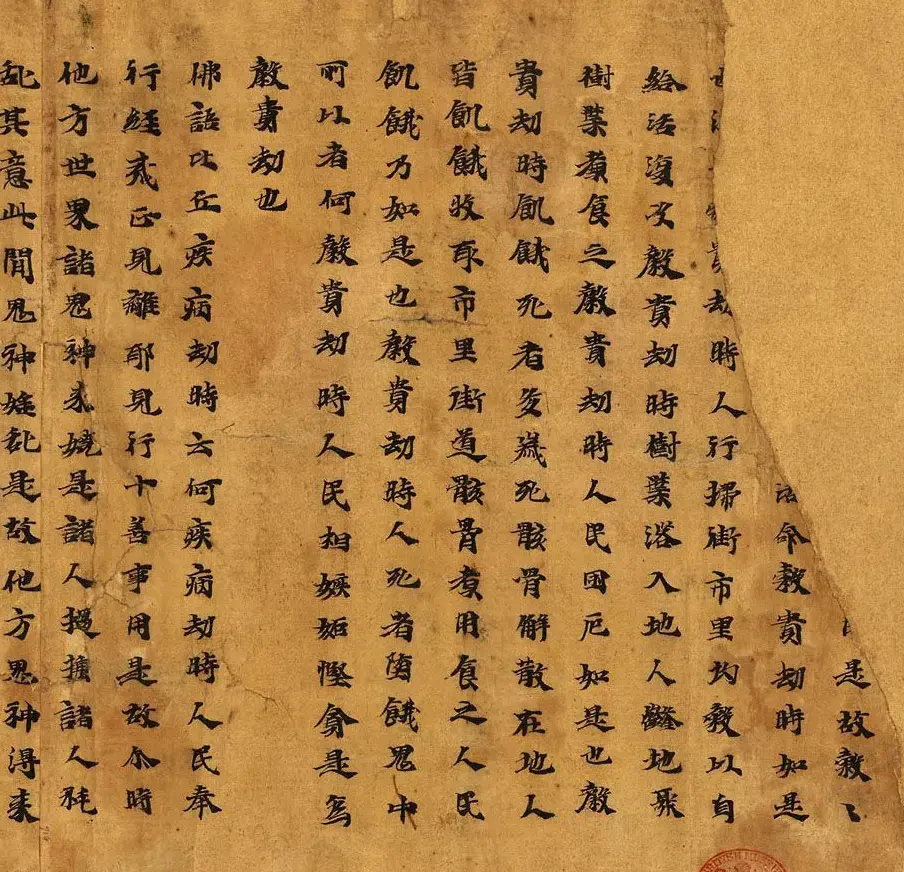 是故穀〻
活命穀貴劫時如是
劫時人行掃街市里均穀以自
給活復次穀貴劫時樹葉落入地人鑿地聚
樹葉煮食之穀貴劫時人民困厄如是也穀
貴劫時飢餓死者多歲死骸骨解散在地人
皆飢餓收取市里街道骸骨煮用食之人民
飢餓乃如是也穀貴劫時人死者墮餓鬼中
所以者何穀貴劫時人民相嫉妬慳貪是為
穀貴劫也
佛語比丘疾病劫時云何疾病劫時人民奉
行經戒正見離耶見行十善事用是故尒時
他方世界諸鬼神來嬈是諸人撾捶諸人秏
乱其意此間鬼神婬乱是故他方鬼神得來